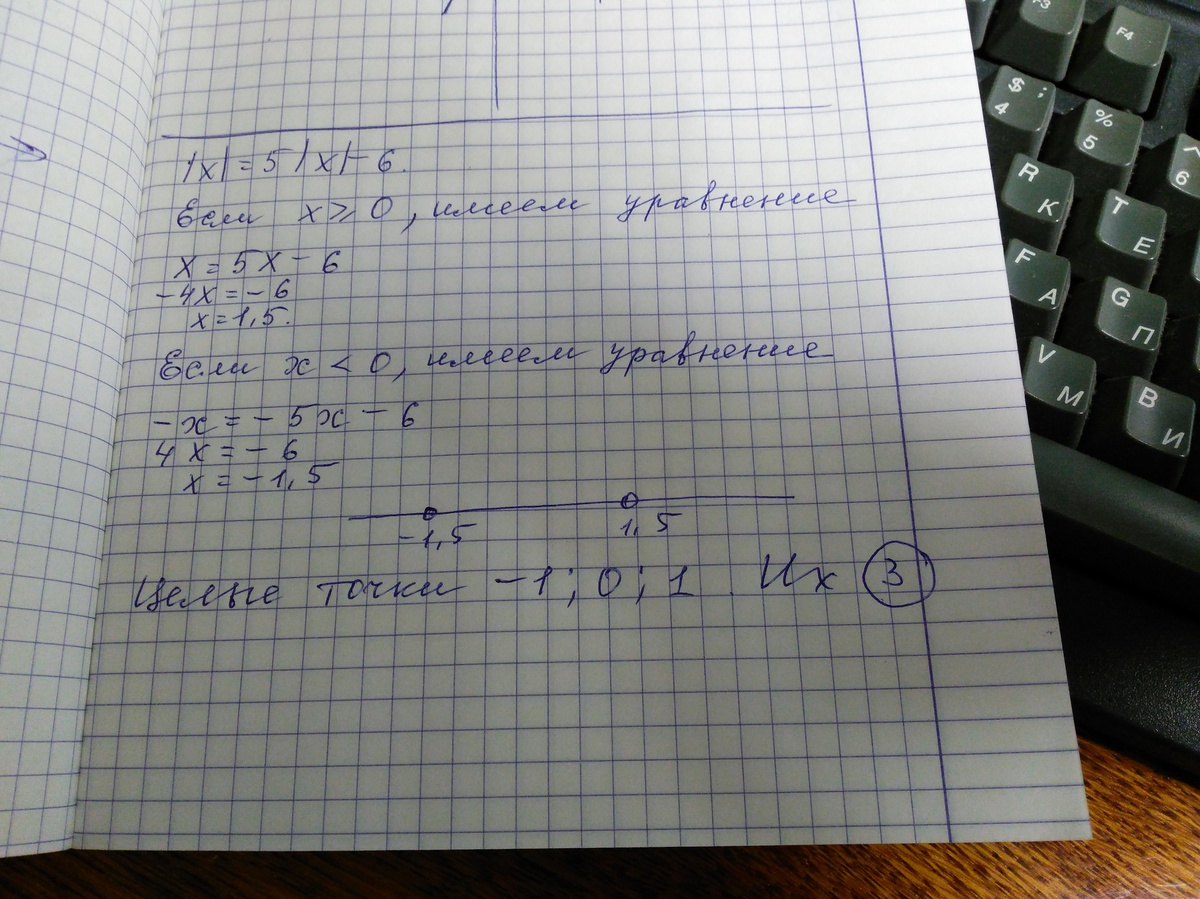 |x| = 5|x| - 6.
Если x ≥ 0, имеем уравнение
x = 5x - 6
-4x = -6
x = 1,5.
Если x < 0, имеем уравнение
-x = -5x - 6
4x = -6
x = -1,5
-1,5 1,5
Целые точки -1; 0; 1. Их 3
F3
F4
$ ; 4
% 5
^ 6
R К
T Е
F А
G П
V М
B И